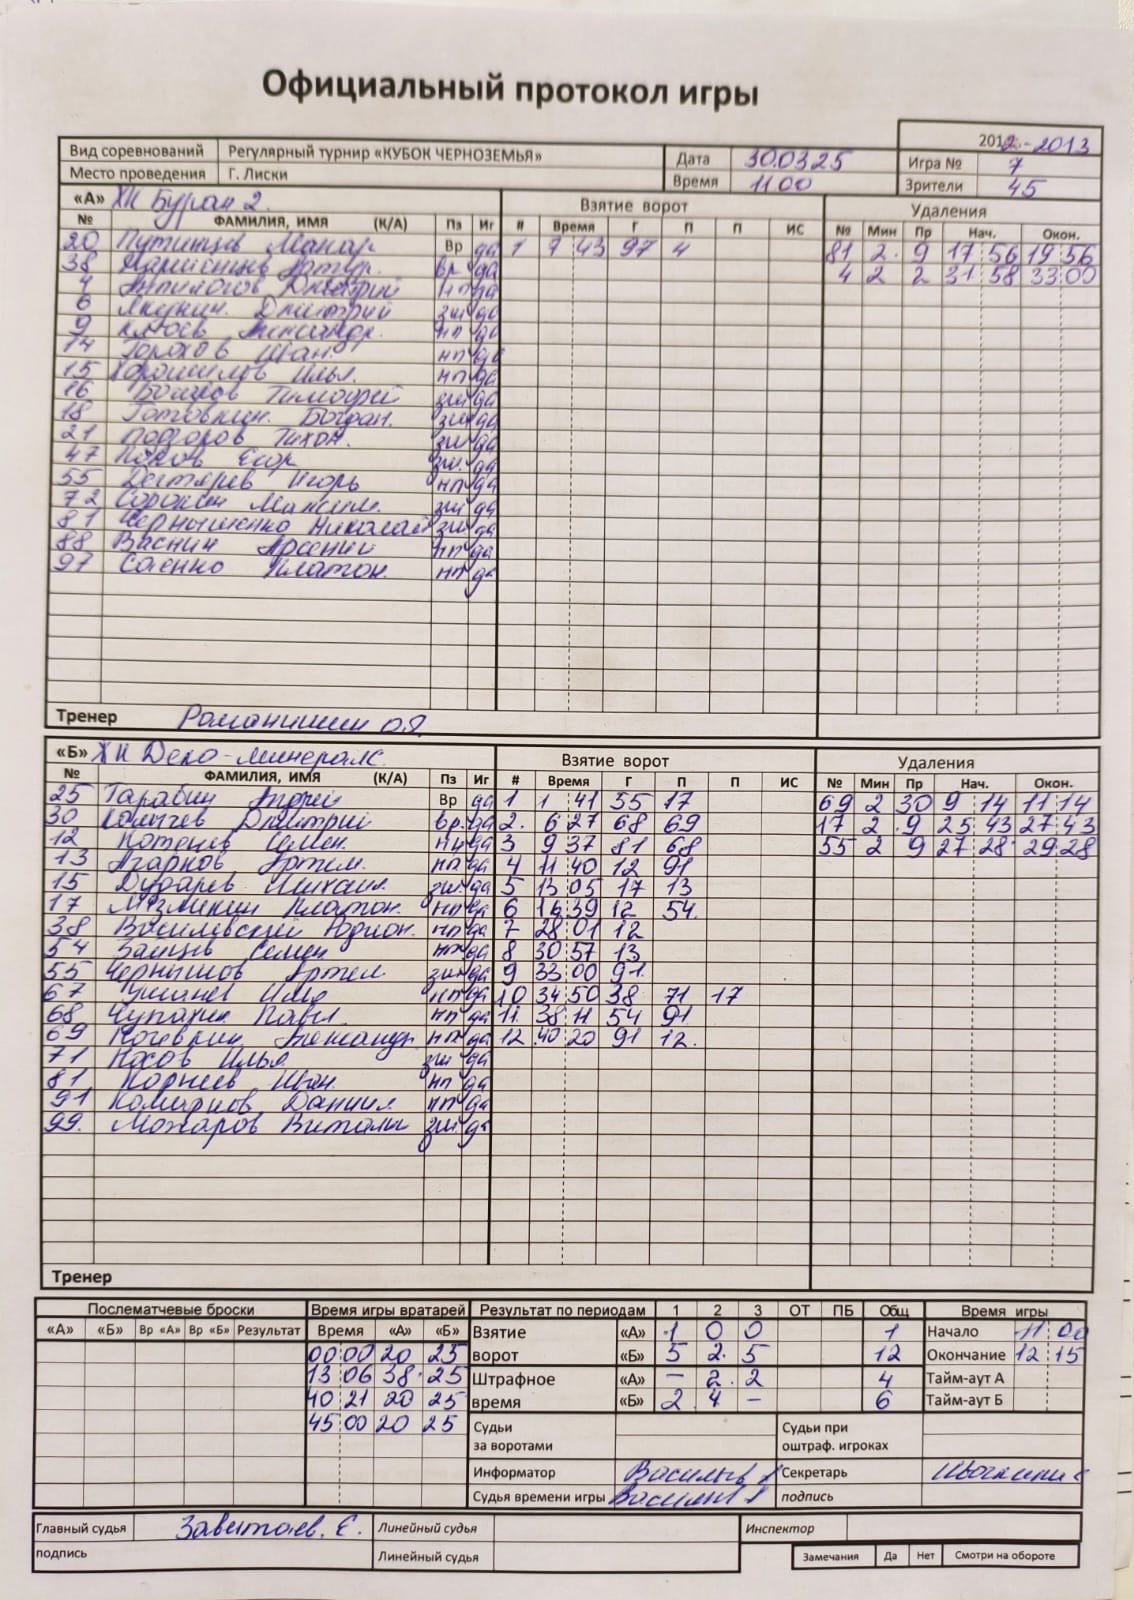 Официальный протокол игры
2012-2013
Вид соревнований Регулярный турнир «КУБОК ЧЕРНОЗЕМЬЯ» Дата 30.03.25 Игра № 7
Место проведения Г. Лиски Время 11 00 Зрители 45
«А» ХК Буран 2 Взятие ворот Удаления
№ ФАМИЛИЯ, ИМЯ (К/А) Пз Иг # Время Г П П ИС № Мин Пр Нач. Окон.
20 Путинцев Макар Вр да 1 7 43 97 4 81 2 9 17 56 19 56
38 Вр да 4 2 2 31 58 33 00
4 Анпилогов Дмитрий нп да
6 Якунин Дмитрий зщ да
9 Клюев Александр нп да
14 Горохов Иван нп да
15 Хорошилов Илья нп да
16 Тимофей зщ да
18 Готовкин Богдан зщ да
21 Подгоров Тихон зщ да
47 Попов Егор зщ да
55 Дегтярев Игорь нп да
72 Сорокин Максим зщ да
81 Чернышенко Николай зщ да
88 Васнин Арсений нп да
97 Саенко Платон нп да
Тренер
«Б» ХК Деко-минералс Взятие ворот Удаления
№ ФАМИЛИЯ, ИМЯ (К/А) Пз Иг # Время Г П П ИС № Мин Пр Нач. Окон.
25 Тарабин Андрей Вр да 1 1 41 55 17 69 2 30 9 14 11 14
30 Дмитрий Вр да 2 6 27 68 69 17 2 9 25 43 27 43
12 Котенев Семен нп да 3 9 37 81 68 55 2 9 27 28 29 28
13 Агарков Артем нп да 4 11 40 12 91
15 Дударев Михаил зщ да 5 13 05 17 13
17 Платон нп да 6 16 39 12 54
38 Василевский Родион нп да 7 28 01 12
54 Зайцев Семен нп да 8 30 57 13
55 Чернышов Артем зщ да 9 33 00 91
67 Илья нп да 10 34 50 38 71 17
68 Чупахин Павел нп да 11 38 11 54 91
69 Александр нп да 12 40 20 91 12
71 Носов Илья зщ да
81 Корнеев Иван нп да
91 Даниил нп да
99 Можаров Виталий зщ да
Тренер
Послематчевые броски Время игры вратарей Результат по периодам 1 2 3 ОТ ПБ Общ Время игры
«А» «Б» Вр «А» Вр «Б» Результат Время «А» «Б» Взятие ворот «А» 1 0 0 1 Начало 11 00
00 00 20 25 «Б» 5 2 5 12 Окончание 12 15
13 06 38 25 Штрафное время «А» – 2 2 4 Тайм-аут А
40 21 20 25 «Б» 2 4 – 6 Тайм-аут Б
45 00 20 25 Судьи за воротами Судьи при оштраф. игроках
Информатор Секретарь
Судья времени игры подпись
Главный судья Линейный судья Инспектор
подпись Линейный судья Замечания Да Нет Смотри на обороте